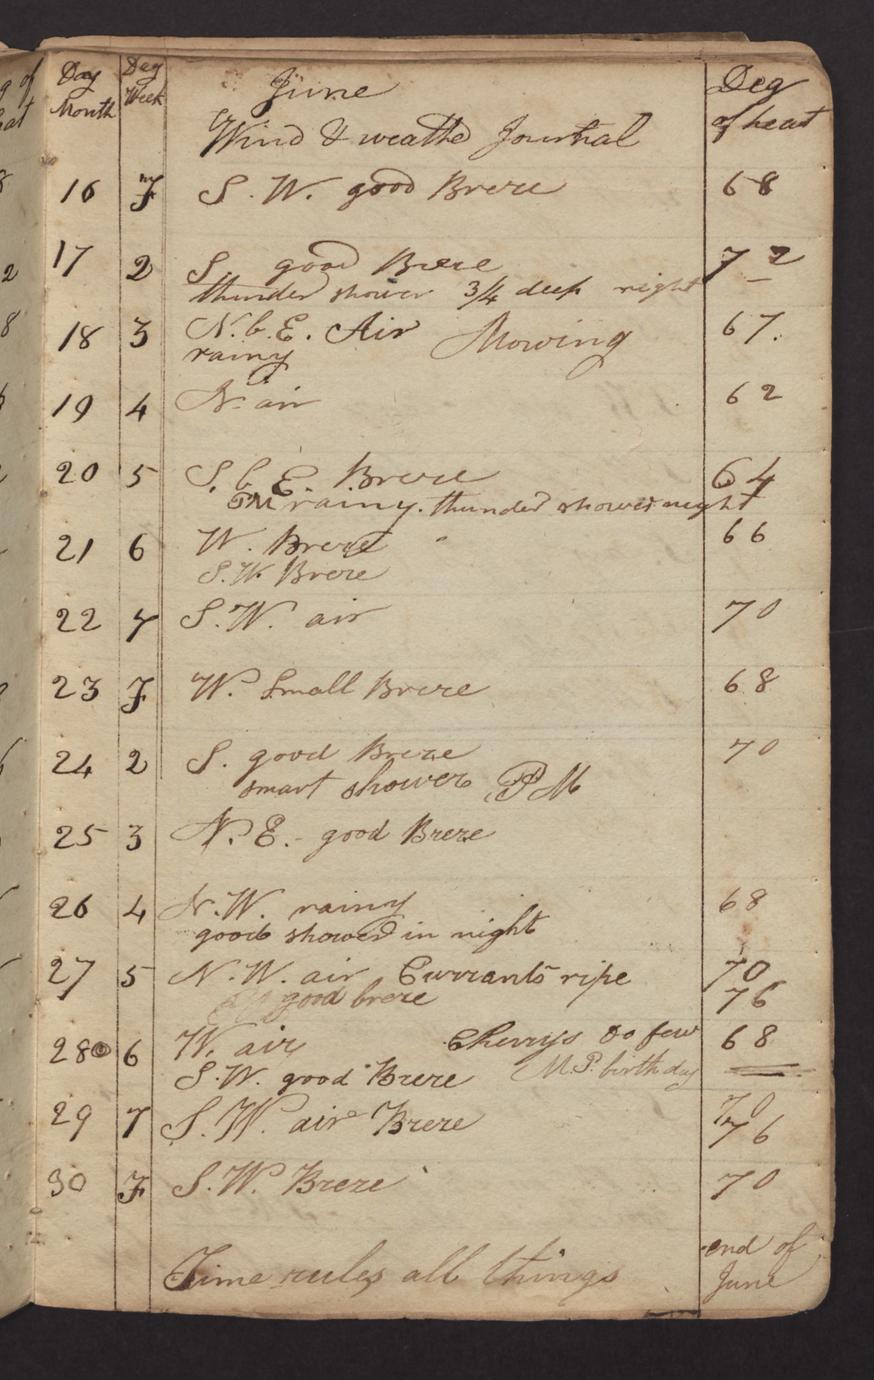 Day Month
Day Week
June
Wind & weathe Journal
Deg of heat
16 F S. W. good Breze 68
17 2 S. good Breze 72
thunder shower 3/4 deep night
18 3 N.b.E. Air Mowing 67.
rainy
19 4 N. air 62
20 5 S. b E. Breze 64
PM rainy. thunder shower night
21 6 W. Breze 66
S.W. Breze
22 7 S.W. air 70
23 F W. Small Breze 68
24 2 S. good Breze 70
smart shower PM
25 3 N.E. - good Breze
26 4 N.W. rainy 68
good shower in night
27 5 N.W. air Currants ripe 70
good breze 76
28 6 W. air Cherrys Do few 68
S.W. good Breze M.P. birth day
29 7 S.W. air Breze 70
76
30 F S.W. Breze 70
Time rules all things
end of
June